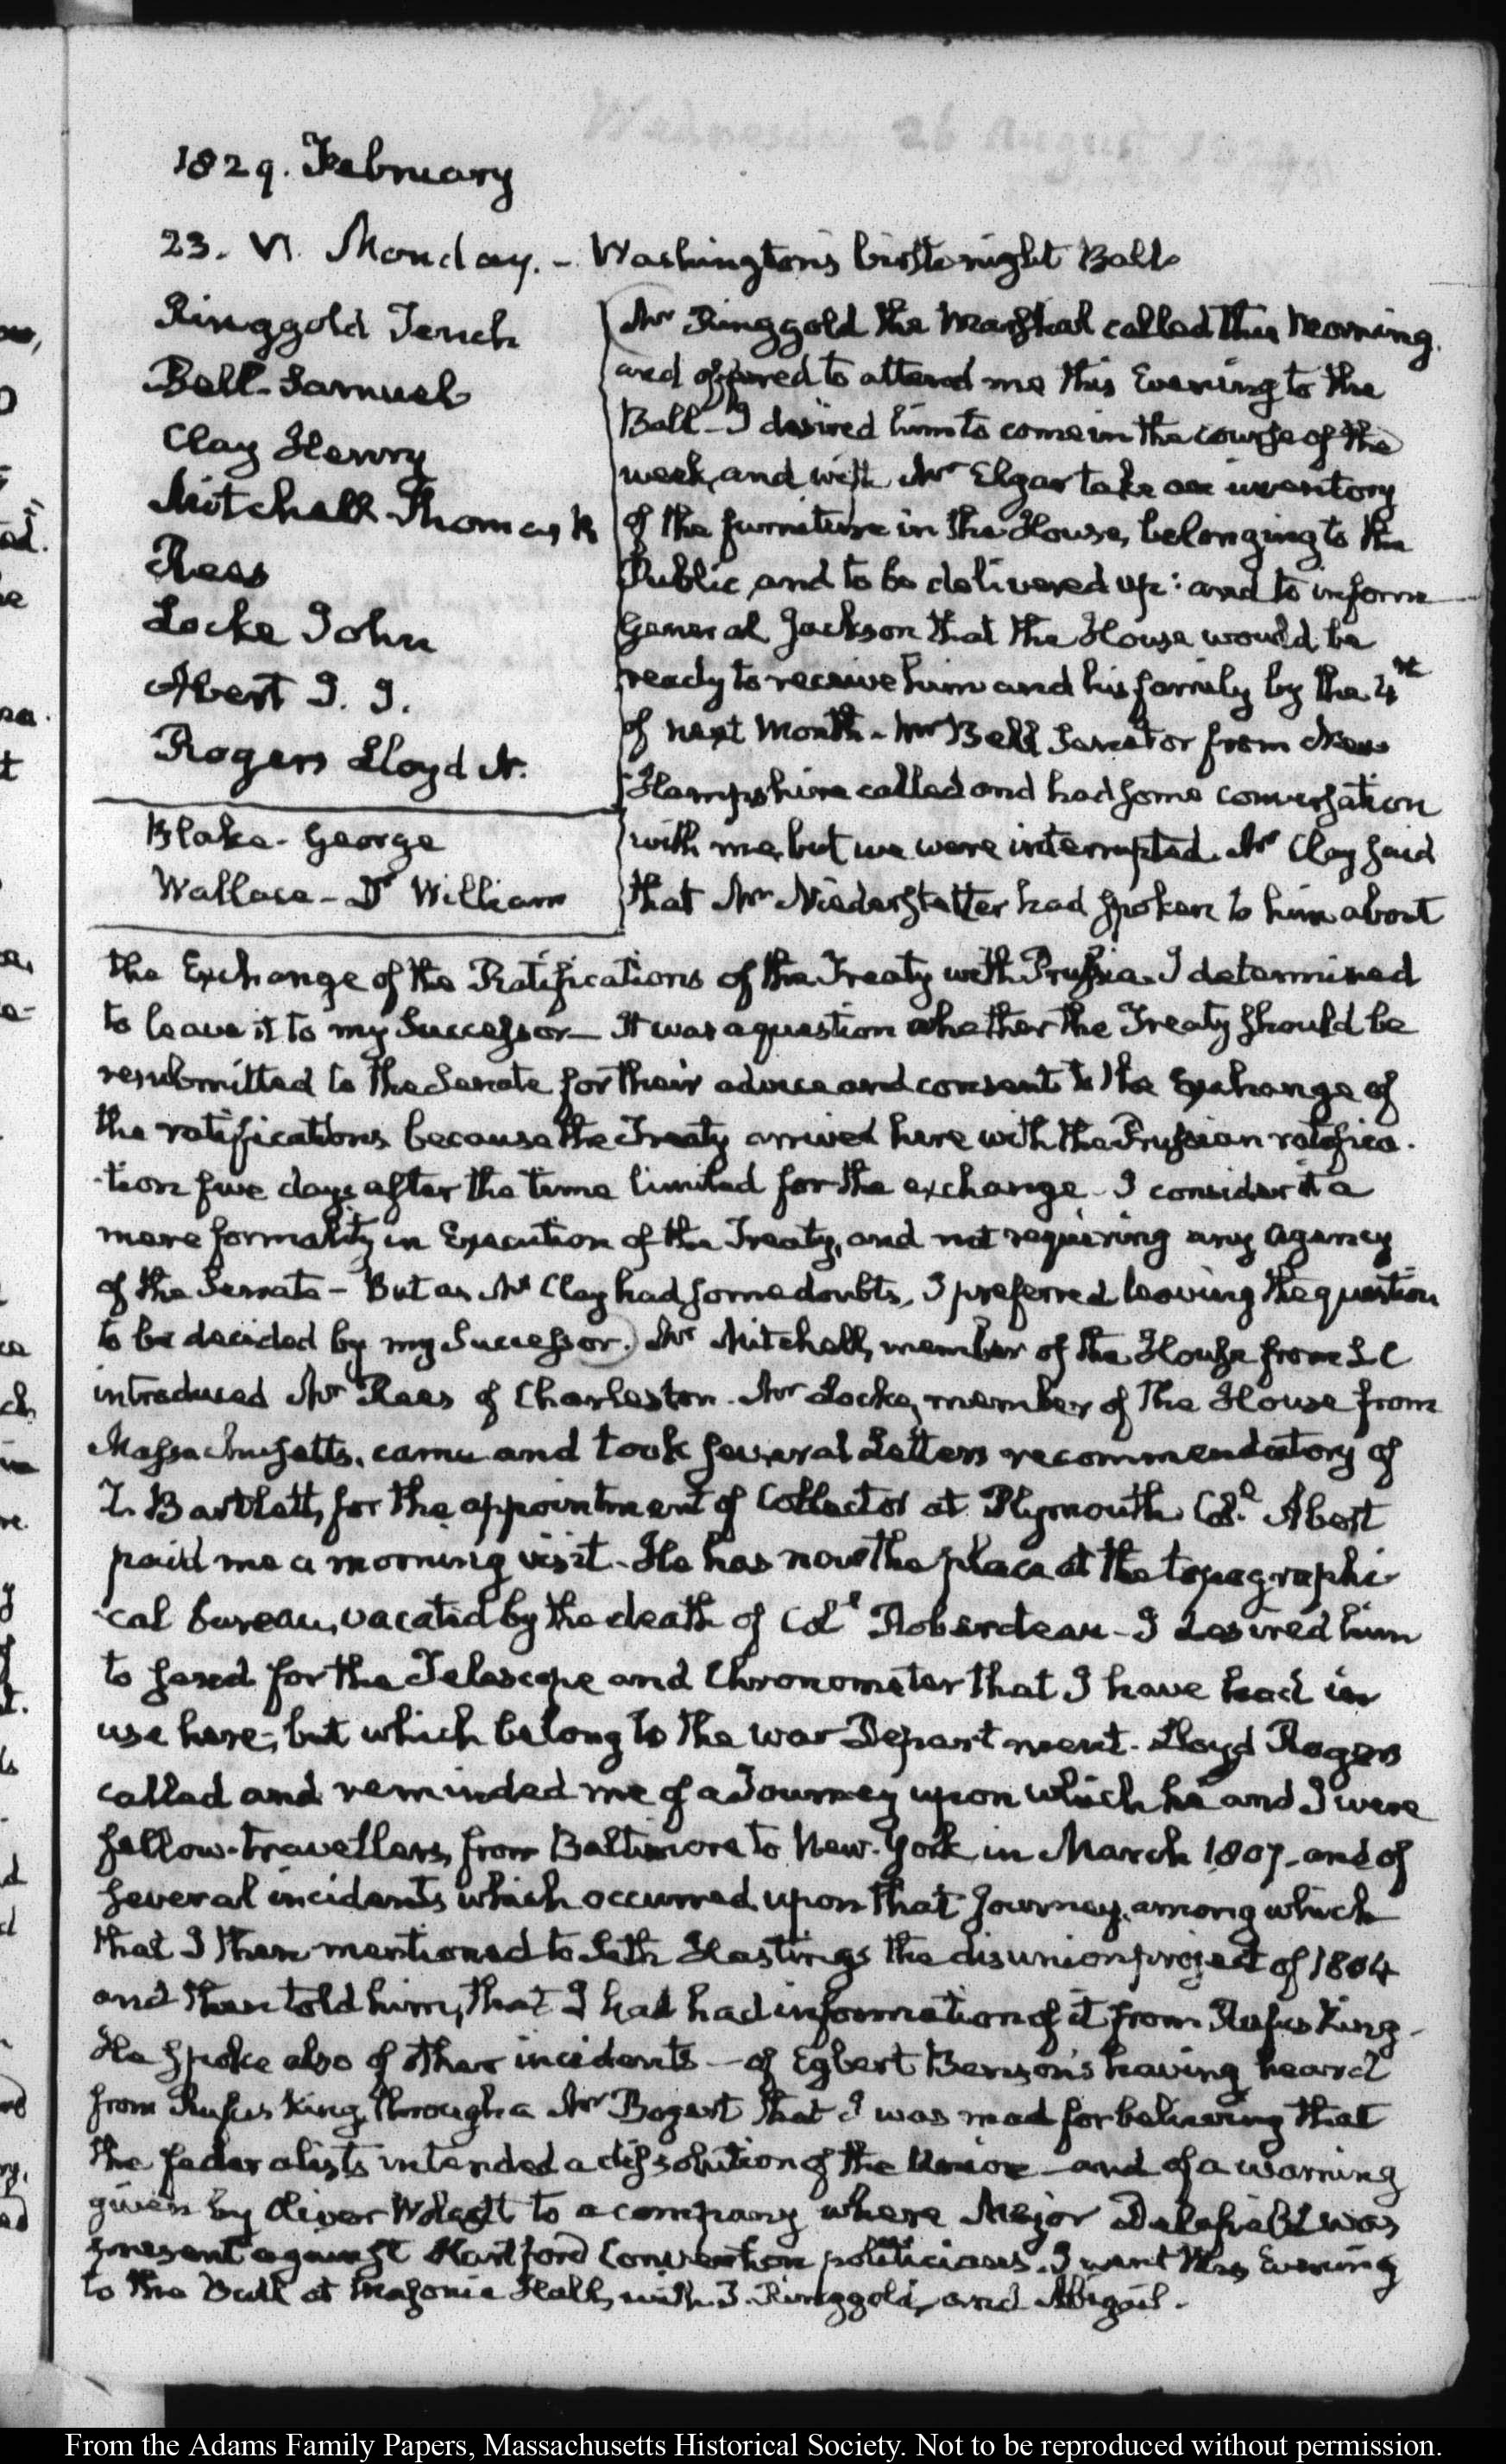 1829. February
23. VI. Monday. - Washington's birth-night Ball
Ringgold Tench
Bell Samuel
Clay Henry
Mitchell Thomas R
Rees
Locke John
Abert J. J.
Rogers Lloyd N.
Blake - George
Wallace - Dr William
Mr Ringgold the Marshal called this Morning.
and offered to attend me this Evening to the
Ball - I desired him to come in the course of the
week, and with Mr Elgar take an inventory
of the furniture in the House, belonging to the
Public, and to be delivered up: and to inform
General Jackson that the House would be
ready to receive him and his family by the 4th
of next Month - Mr Bell Senator from New
Hampshire called and had some conversation
with me, but we were interrupted. Mr Clay said
that Mr Niederstetter had spoken to him about
the Exchange of the Ratifications of the Treaty with Prussia. I determined
to leave it to my Successor - It was a question whether the Treaty should be
resubmitted to the Senate for their advice and consent to the Exchange of
the ratifications because the Treaty arrived here with the Prussian ratifica-
-tion five days after the time limited for the exchange - I consider it a
mere formality in Execution of the Treaty, and not requiring any agency
of the Senate - But as Mr Clay had some doubts, I preferred leaving the question
to be decided by my Successor. Mr Mitchell, member of the House from S C
introduced Mr Rees of Charleston. Mr Locke, member of the House from
Massachusetts, came and took several Letters recommendatory of
Z. Bartlett, for the appointment of Collector at Plymouth. Col. Abert
paid me a morning visit - He has now the place at the topographi-
-cal bureau, vacated by the death of Col Roberdeau - I desired him
to send for the Telescope and Chronometer that I have had in
use here; but which belong to the War Department. Lloyd Rogers
called and reminded me of a Journey upon which he and I were
fellow-travellers, from Baltimore to New-York in March 1807 - and of
several incidents which occurred upon that Journey, among which
that I then mentioned to Seth Hastings the disunion project of 1804
and then told him, that I had had information of it from Rufus King -
He spoke also of other incidents - of Egbert Benson's having heard
from Rufus King, through a Mr Bogert that I was mad for believing that
the federalists intended a dissolution of the Union - and of a warning
given by Oliver Wolcott to a company where Major Delafield was
present against Hartford Convention politicians. I went this Evening
to the Ball at Masonic Hall, with T. Ringgold, and Abigail.
From the Adams Family Papers, Massachusetts Historical Society. Not to be reproduced without permission.